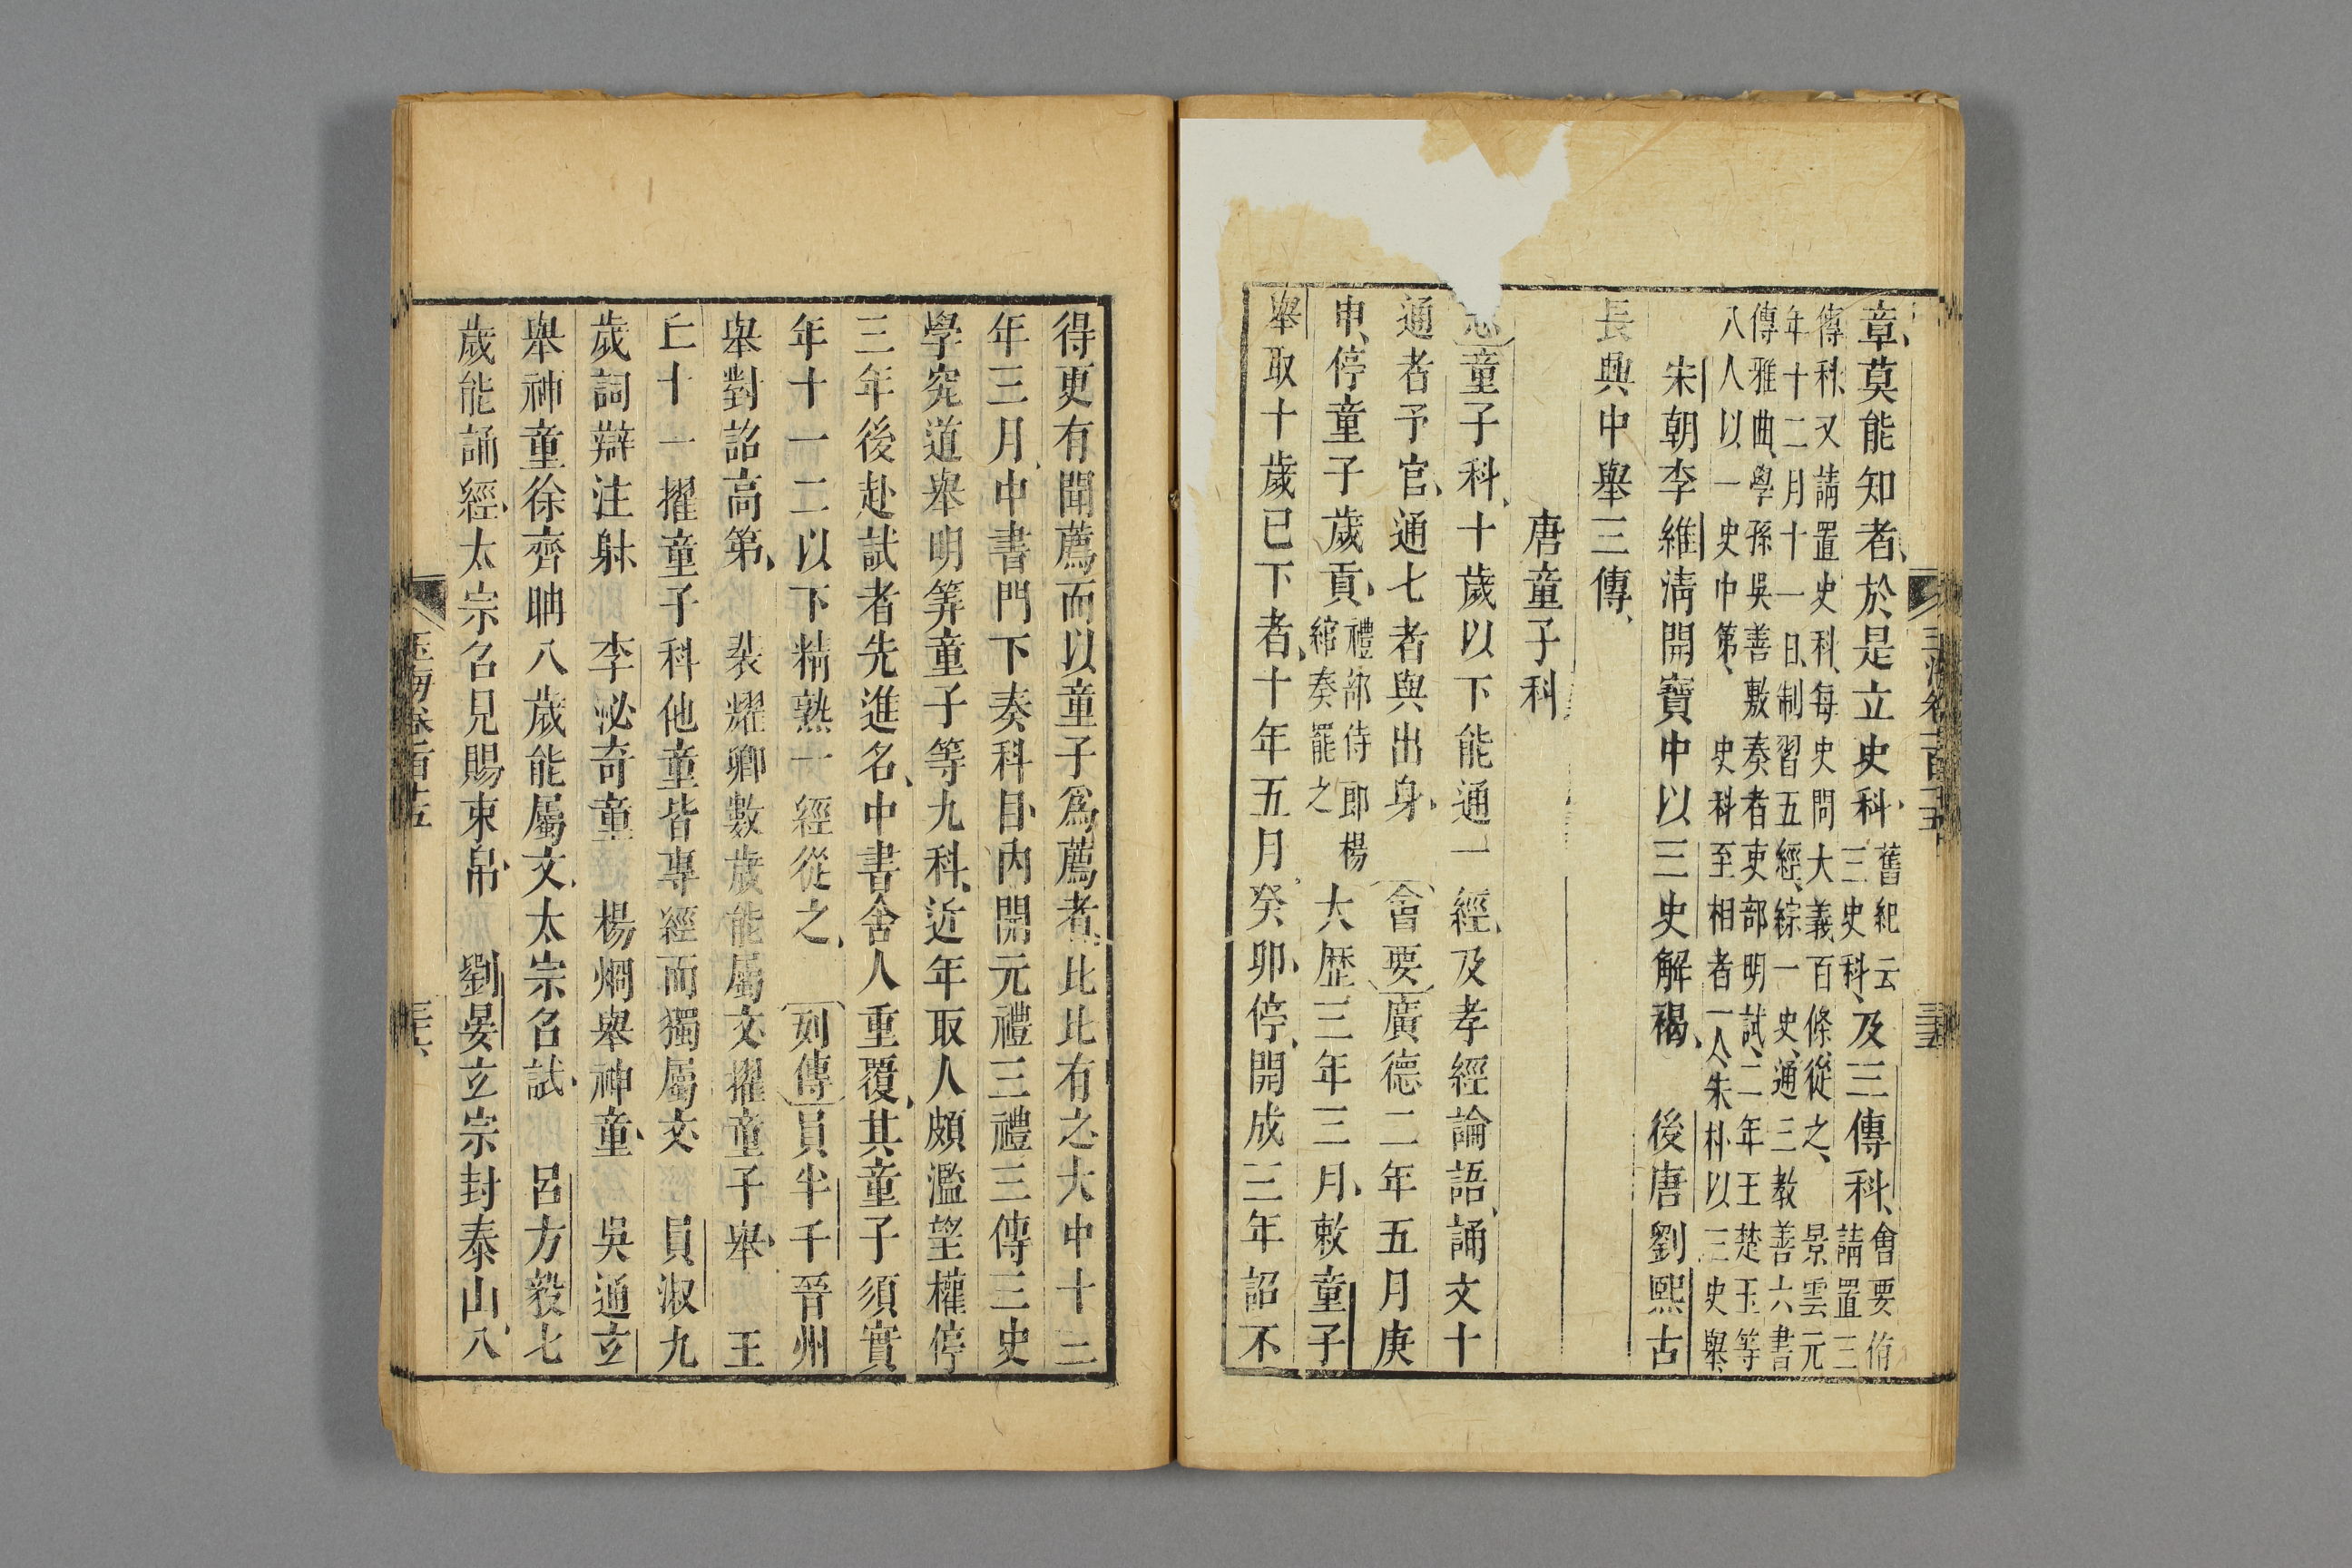 章莫能知者於是立史科舊紀云三史科及三傳科會要侑請置三
傳科又請置史科每史問大義百條從之景雲元
年十二月十一日制習五經綜一史通三教善六書
傳雅曲學孫吳善敷奏者吏部明試二年王楚玉等
八人以一史中第史科至相者一人朱朴以三史舉
宋朝李維淸開寶中以三史解褐 後唐劉熙古
長興中舉三傳
唐童子科
志童子科十歲以下能通一經及孝經論語誦文十
通者予官通七者與出身 會要廣德二年五月庚
申停童子歲貢禮部侍郎楊綰奏罷之大歷三年三月敕童子
舉取十歲已下者十年五月癸卯停開成三年詔不
玉海卷一百十五 三五
得更有聞薦而以童子爲薦者比比有之大中十二
年三月中書門下奏科目內開元禮三禮三傳三史
學究道舉明筭童子等九科近年取人頗濫望權停
三年後赴試者先進名中書舍人重覆其童子須實
年十一二以下精熟一經從之 列傳員半千晉州
舉對詔高第 裴耀卿數歲能屬文擢童子舉 王
丘十一擢童子科他童皆專經而獨屬文 員淑九
歲詞辯注射 李泌奇童 楊烱舉神童 吳通玄
舉神童徐齊聃八歲能屬文太宗召試 呂方毅七
歲能誦經太宗召見賜束帛 劉晏玄宗封泰山八
玉海卷一百十五 三六